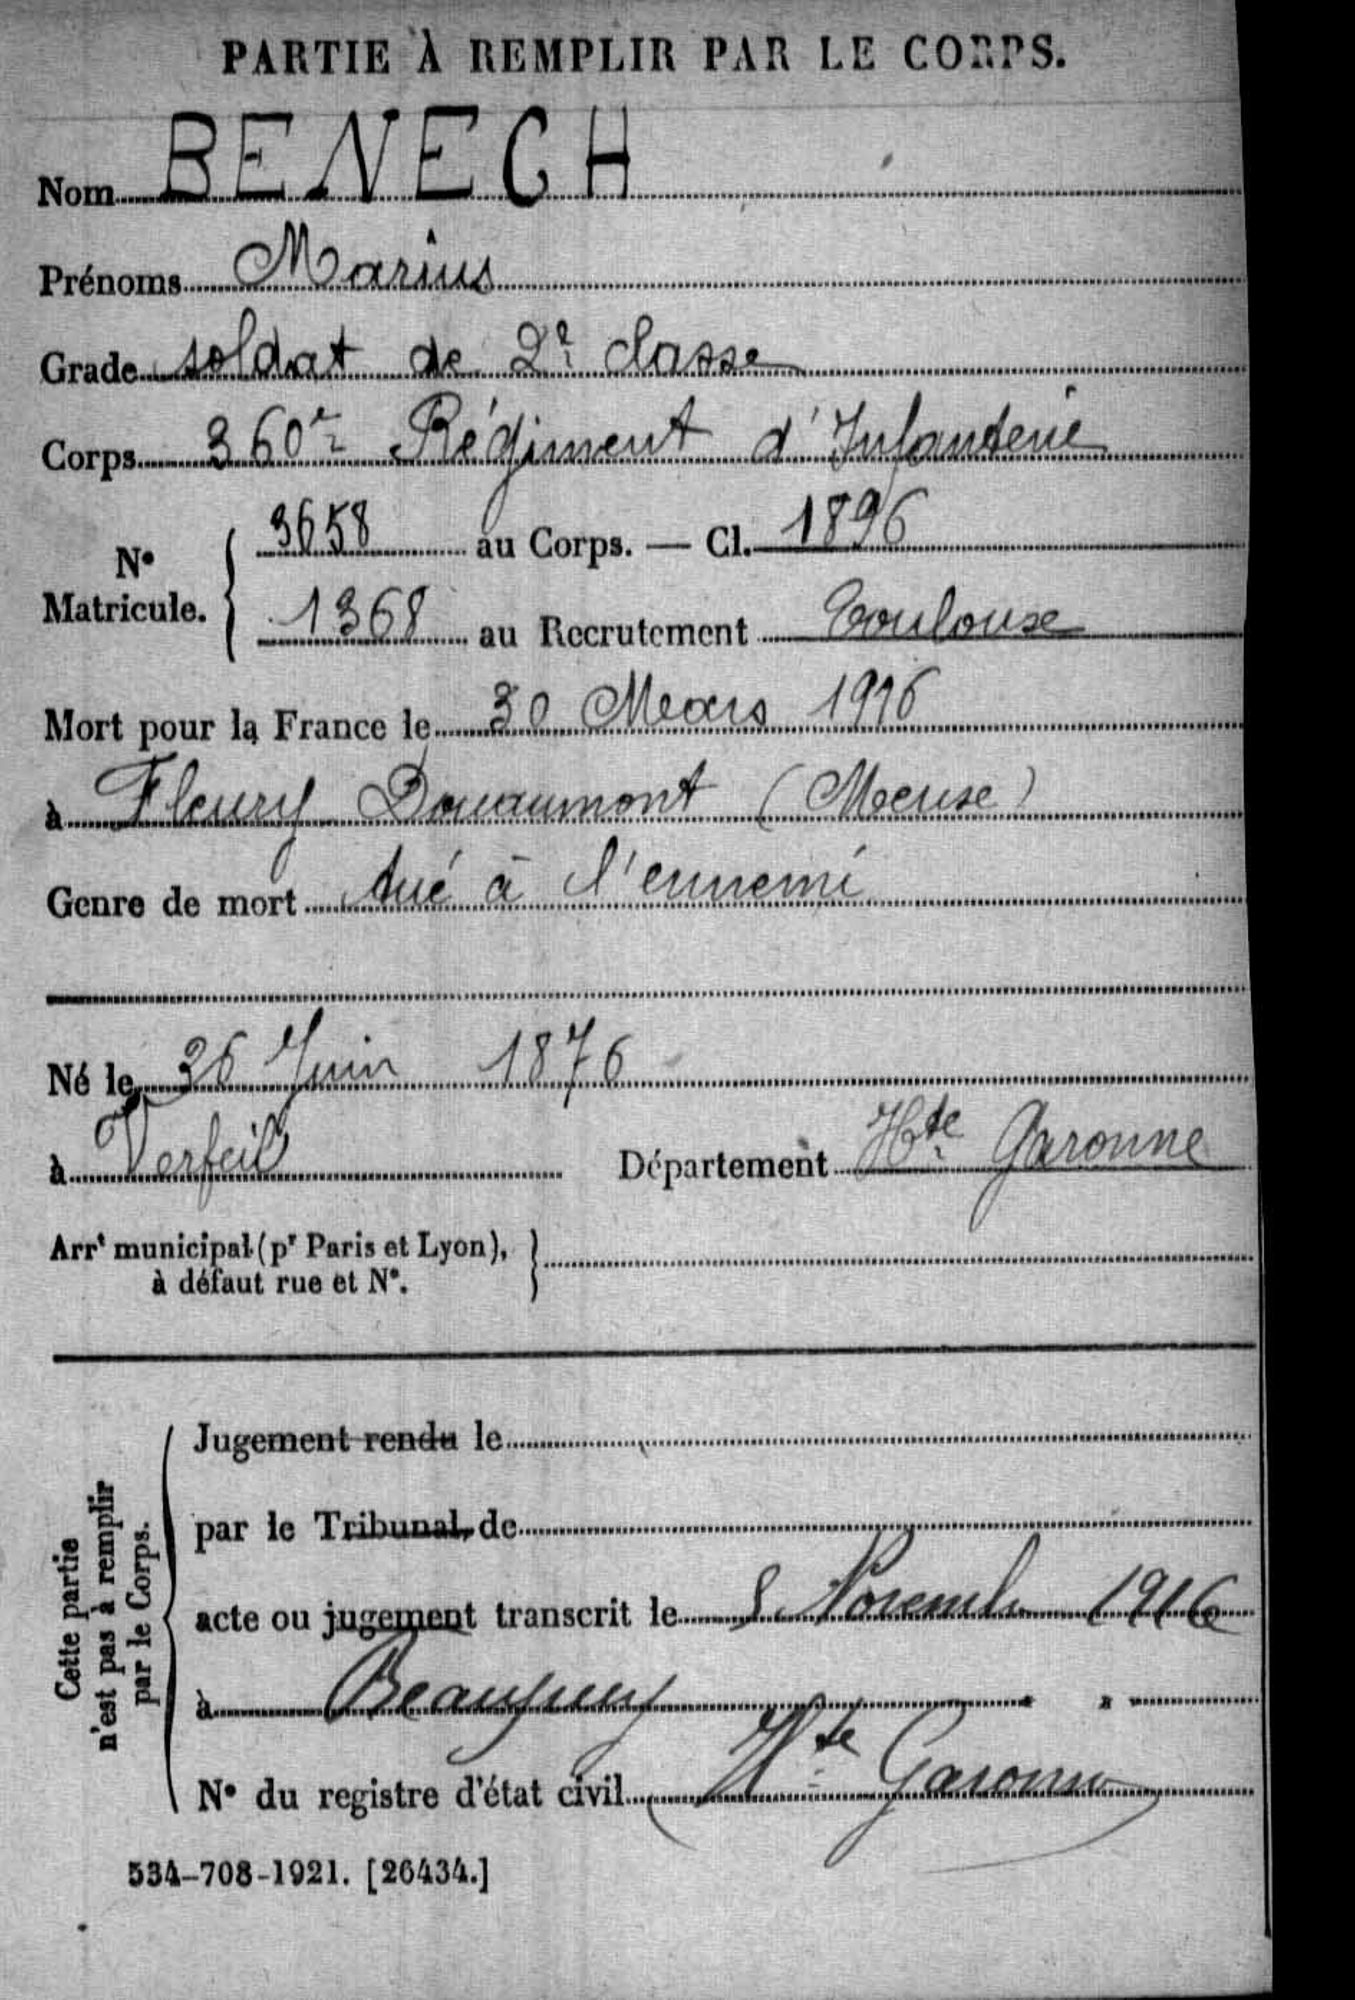 PARTIE À REMPLIR PAR LE CORPS.
Nom BENECH
Prénoms Marius
Grade soldat de 2e classe
Corps 360e Régiment d'Infanterie
No Matricule. { 3658 au Corps. — Cl. 1896
1368 au Recrutement Toulouse
Mort pour la France le 30 Mars 1916
à Fleury Douaumont (Meuse)
Genre de mort tué à l'ennemi
Né le 26 Juin 1876
à Verfeil Département Hte Garonne
Arrt municipal (pr Paris et Lyon),
à défaut rue et No.
Cette partie n'est pas à remplir par le Corps.
Jugement rendu le
par le Tribunal de
acte ou jugement transcrit le 8 Novemb 1916
à Beaupuy
No du registre d'état civil Hte Garonne
534-708-1921. [26434.]